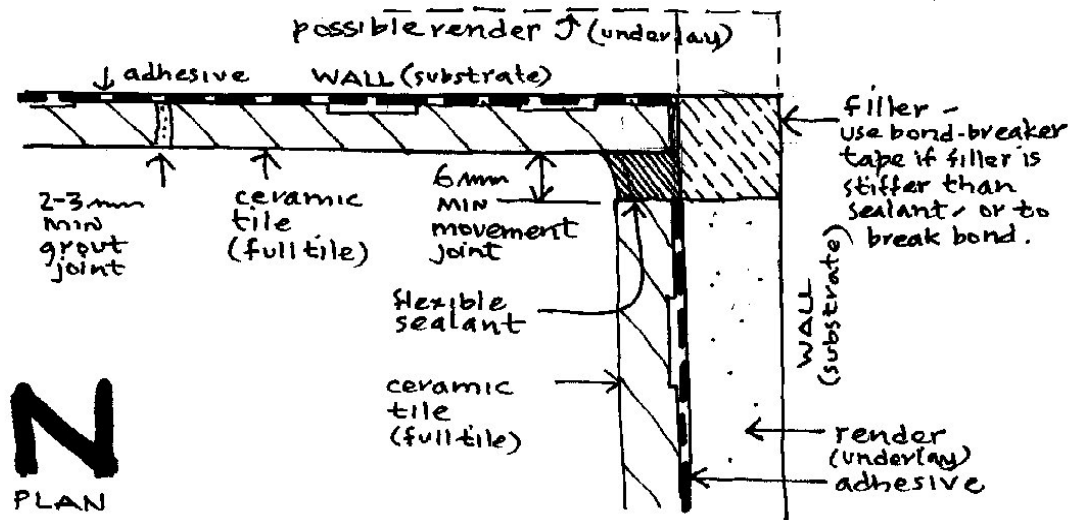 possible render (underlay)
adhesive
WALL (substrate)
filler -
use bond-breaker
tape if filler is
stiffer than
sealant, or to
break bond.
2-3mm
MIN
grout
joint
ceramic
tile
(full tile)
6mm
MIN
movement
joint
flexible
sealant
WALL
(substrate)
ceramic
tile
(full tile)
render
(underlay)
adhesive
N
PLAN